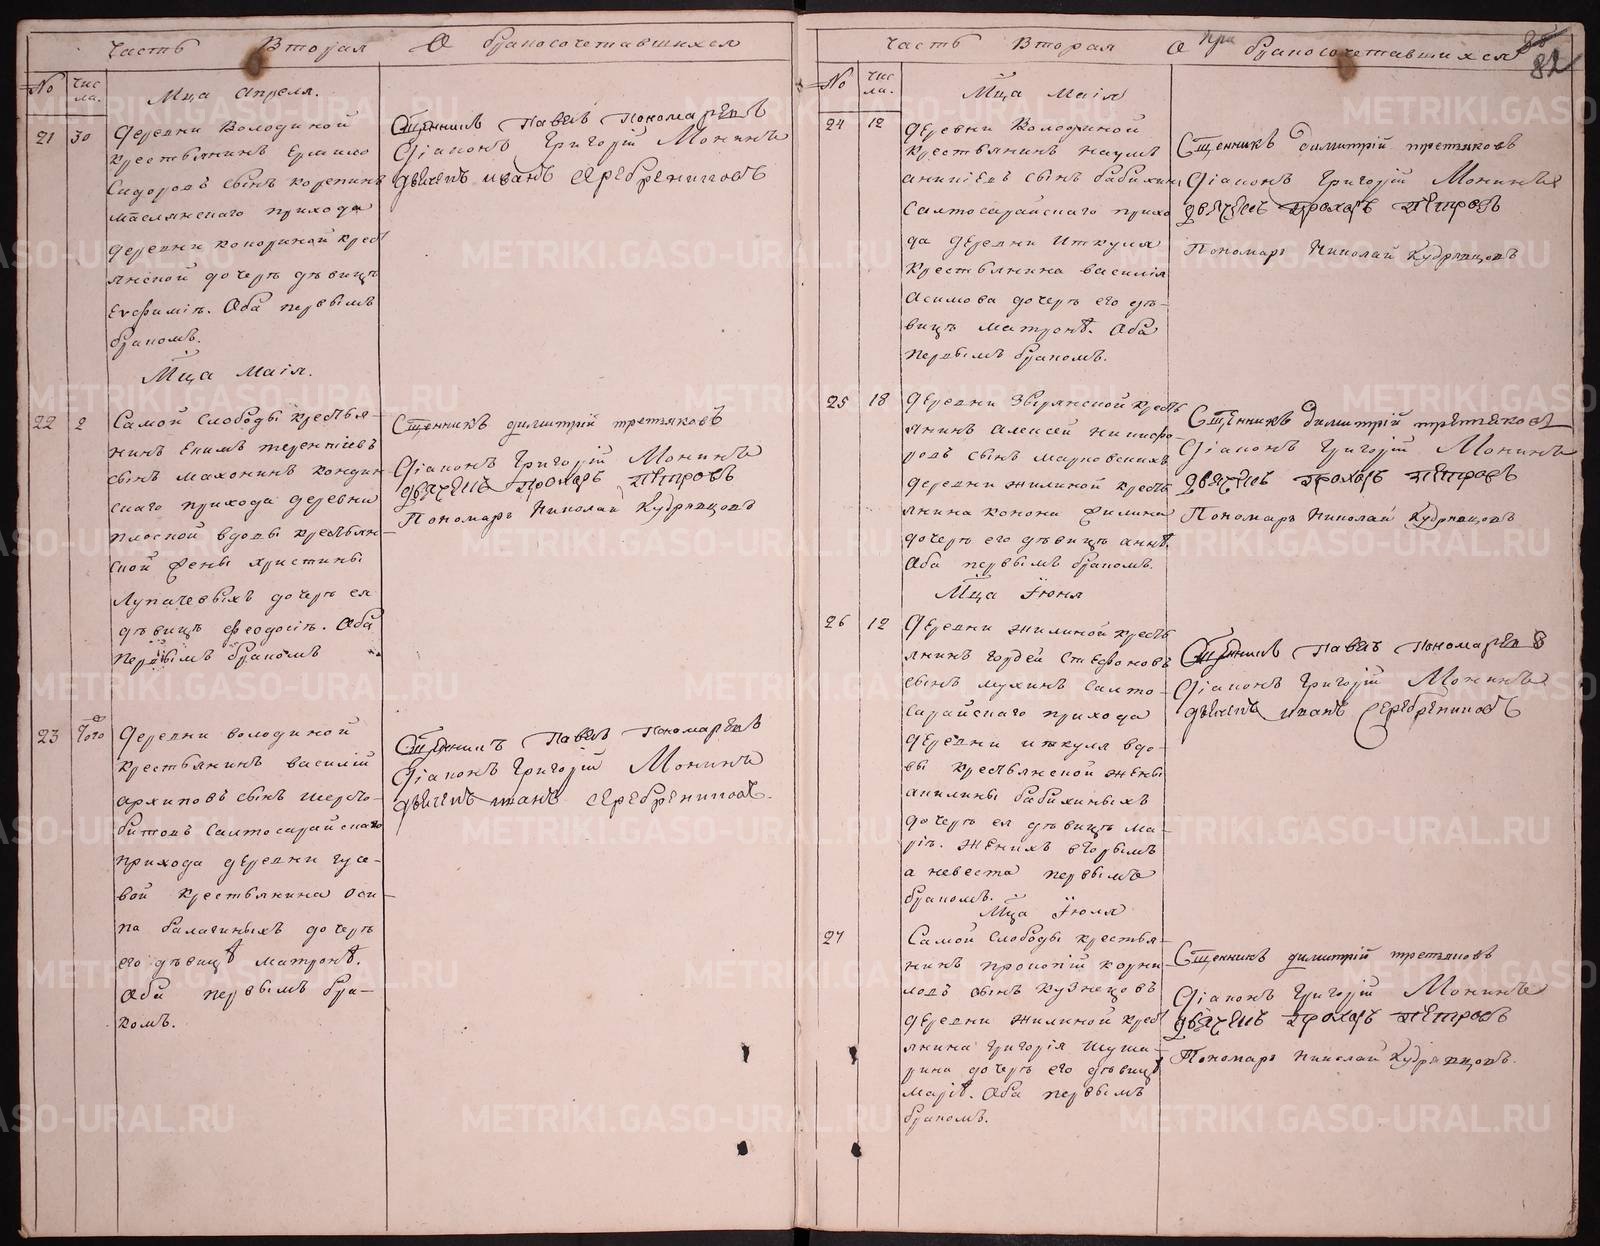 Часть Вторая О бракосочетавшихся
№ Чис
ла.
Мца Апреля.
21 30 деревни Володиной
крестьянинъ Ермило
Сидоровъ сынъ Корепинъ
маслянскаго прихода
деревни Конориной крест
янской дочерь дѣвицъ
Евфиміѣ. Оба первымъ
бракомъ.
Сщенникъ Павелъ Пономаревъ
Діаконъ Григорій Мокинъ
дьячекъ иванъ серебрениковъ
Мца Маія.
22 2 Самой слободы крестья-
нинъ Екимъ терентіевъ
сынъ махонинъ кондин
скаго прихода деревни
плоской вдовы крестьян-
ской жены христины
Лупачевыхъ дочерь ея
дѣвицъ феодосіѣ. Оба
первымъ бракомъ
Сщенникъ димитрій третьяковъ
Діаконъ Григорій Мокинъ
дьячекъ Прохоръ Петровъ
Пономарь Николай Кудрявцовъ
23 Того деревни володиной
крестьянинъ василій
архиповъ сынъ шерсто-
битовъ Салтосарайскаго
прихода деревни гусе-
вой крестьянина оси-
па балагиныхъ дочерь
его дѣвицѣ матронѣ.
Оба первымъ бра-
комъ.
Сщенникъ Павелъ Пономаревъ
Діаконъ Григорій Мокинъ
дьячекъ иванъ серебрениковъ.
Часть Вторая О при бракосочетавшихся
82
№ Чис
ла.
Мца Маія
24 12 деревни Володиной
крестьянинъ наумъ
аникіевъ сынъ бабихинъ
Салтосарайскаго прихо
да деревни Иткуля
крестьянина василія
Асимова дочерь его дѣ-
вицъ матронѣ. Оба
первымъ бракомъ.
Сщенникъ димитрій третьяковъ
Діаконъ Григорій Мокинъ
дьячекъ Прохоръ Петровъ
Пономарь Николай Кудрявцовъ
25 18 деревни Звѣрянской кресть
янинъ алексей никифо-
ровъ сынъ марковскихъ
деревни жилиной кресть
янина конона филина
дочерь его дѣвицъ аннѣ.
Оба первымъ бракомъ.
Сщенникъ димитрій третьяковъ
Діаконъ Григорій Мокинъ
дьячекъ Прохоръ Петровъ
Пономарь Николай Кудрявцовъ
Мца Іюня
26 12 деревни жилиной кресть
янинъ гордей Стефановъ
сынъ мухинъ Салто-
сарайскаго прихода
деревни иткуля вдо-
вы крестьянской жены
акилины бабихиныхъ
дочерь ея дѣвицъ ма-
ріѣ. женихъ вторымъ
а невеста первымъ
бракомъ.
Сщенникъ Павелъ Пономаревъ
Діаконъ Григорій Мокинъ
дьячекъ иванъ Серебрениковъ
Мца Іюля
27 Самой слободы крестья-
нинъ прокопій корни
ловъ сынъ кузнецовъ
деревни жилиной крест
янина григорія Шуша-
рина дочерь его дѣвицѣ
маріѣ. Оба первымъ
бракомъ.
Сщенникъ димитрій третьяковъ
Діаконъ Григорій Мокинъ
дьячекъ Прохоръ Петровъ
Пономарь Николай Кудрявцовъ.
METRIKI.GASO-URAL.RU